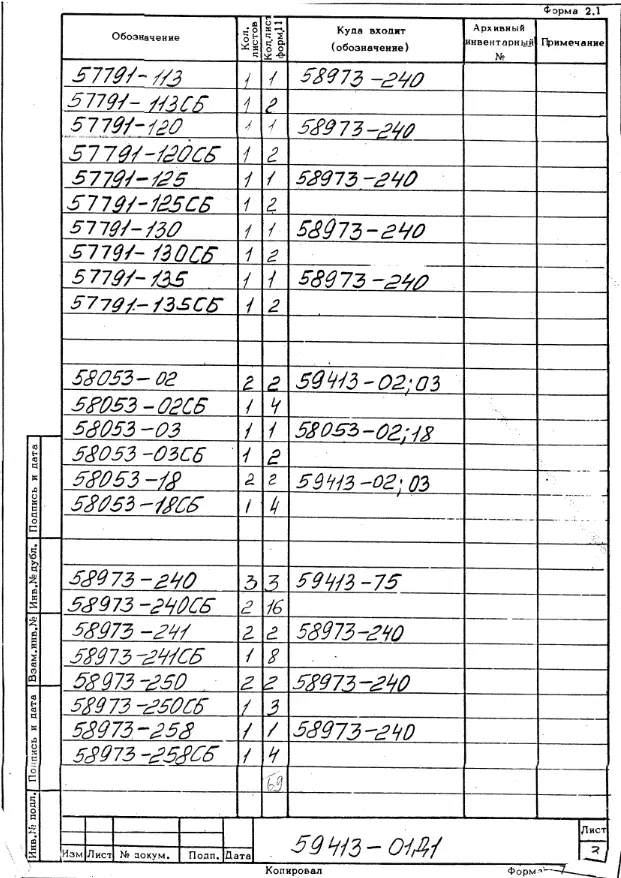 Форма 2.1
Обозначение Кол. листов Кол.лист форм.11 Куда входит (обозначение) Архивный инвентарный № Примечание
57791-113 1 1 58973-240
57791-113СБ 1 2
57791-120 1 1 58973-240
57791-120СБ 1 2
57791-125 1 1 58973-240
57791-125СБ 1 2
57791-130 1 1 58973-240
57791-130СБ 1 2
57791-135 1 1 58973-240
57791-135СБ 1 2
58053-02 2 2 59413-02;03
58053-02СБ 1 4
58053-03 1 1 58053-02;18
58053-03СБ 1 2
58053-18 2 2 59413-02;03
58053-18СБ 1 4
58973-240 3 3 59413-75
58973-240СБ 2 16
58973-241 2 2 58973-240
58973-241СБ 1 8
58973-250 2 2 58973-240
58973-250СБ 1 3
58973-258 1 1 58973-240
58973-258СБ 1 4
69
Инв.№ подл. Подпись и дата Взам.инв.№ Инв.№ дубл. Подпись и дата
59413-01Д1
Лист
3
Изм Лист № докум. Подп. Дата
Копировал